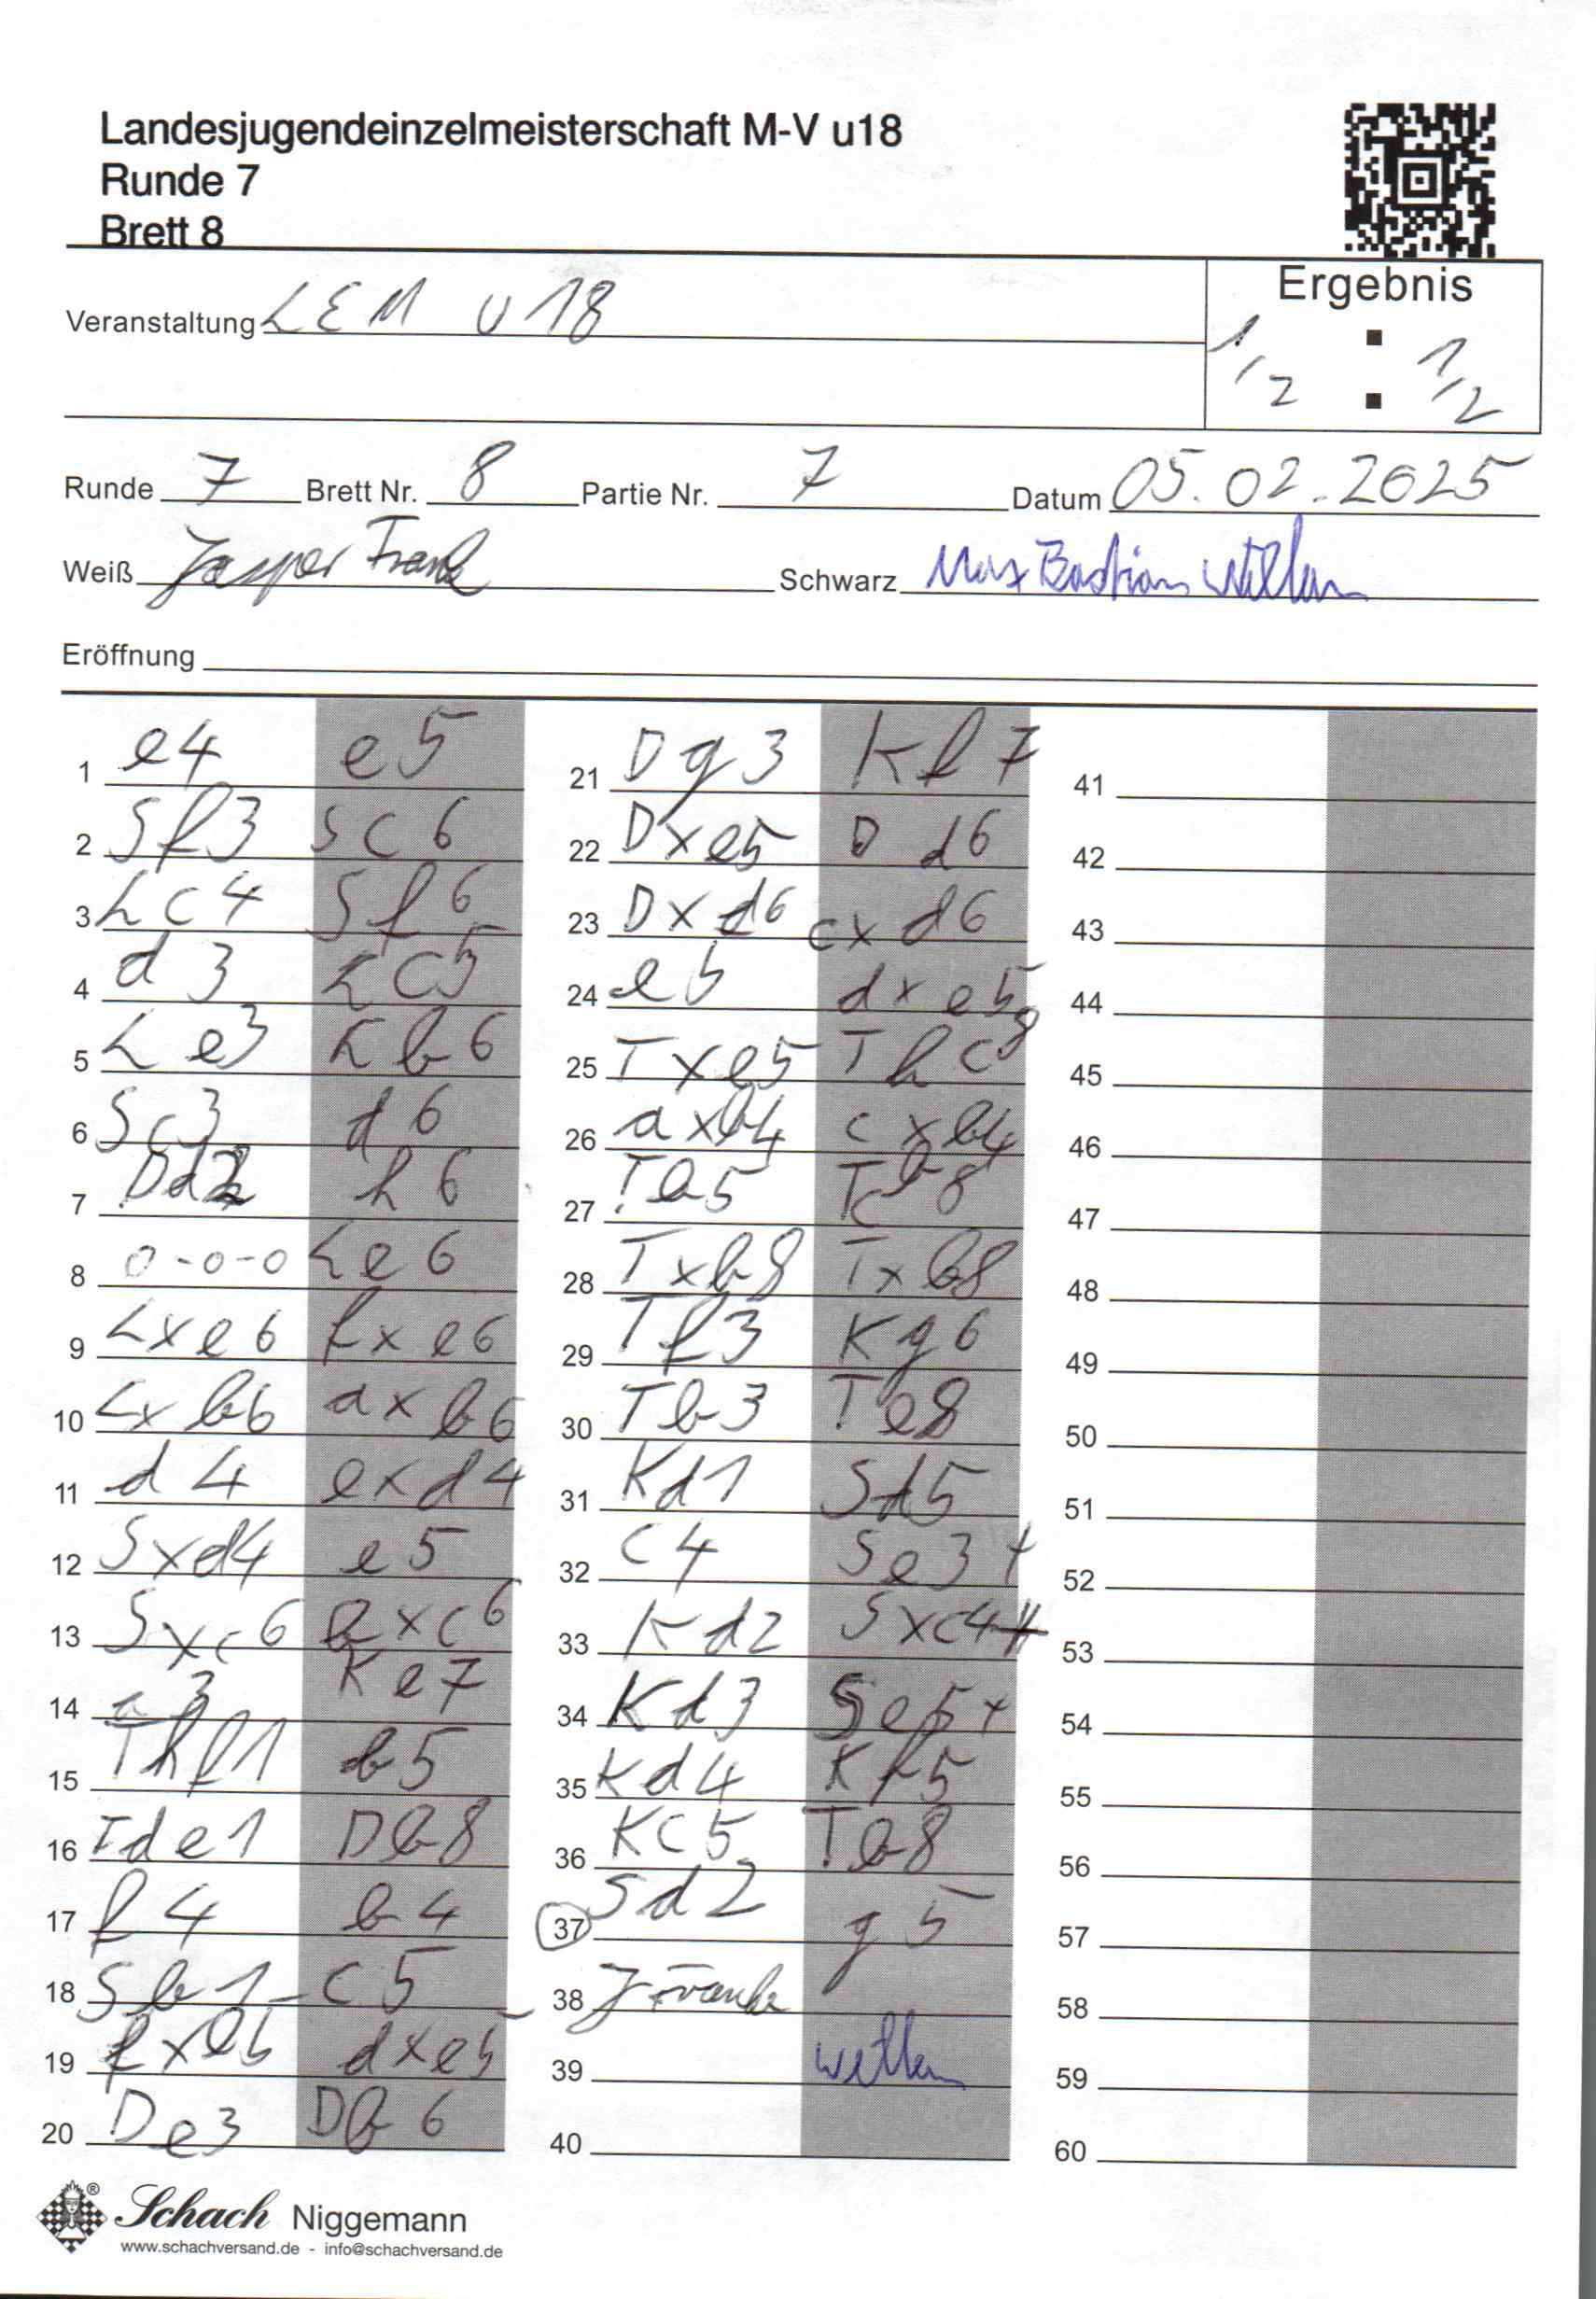 Landesjugendeinzelmeisterschaft M-V u18
Runde 7
Brett 8
Ergebnis
Veranstaltung LEM U18
1/2 : 1/2
Runde 7 Brett Nr. 8 Partie Nr. 7 Datum 05.02.2025
Weiß Jasper Frank Schwarz Max Bastian
Eröffnung
1 e4 e5
2 Sf3 Sc6
3 Lc4 Sf6
4 d3 Lc5
5 Le3 Lb6
6 Sc3 d6
7 Dd2 h6
8 0-0-0 Le6
9 Lxe6 fxe6
10 Lxb6 axb6
11 d4 exd4
12 Sxd4 e5
13 Sxc6 bxc6
14 a3 Ke7
15 Thf1 b5
16 Tde1 Db8
17 f4 b4
18 Sb1 c5
19 fxe5 dxe5
20 De3 Db6
21 Dg3 Kf7
22 Dxe5 Dd6
23 Dxd6 cxd6
24 e5 dxe5
25 Txe5 Thc8
26 axb4 cxb4
27 Tb5 Tcb8
28 Txb8 Txb8
29 Tf3 Kg6
30 Tb3 Te8
31 Kd1 Sd5
32 c4 Se3+
33 Kd2 Sxc4+
34 Kd3 Se5+
35 Kd4 Kf5
36 Kc5 Tb8
37 Sd2 g5
38
39
40
41
42
43
44
45
46
47
48
49
50
51
52
53
54
55
56
57
58
59
60
Schach Niggemann
www.schachversand.de - info@schachversand.de